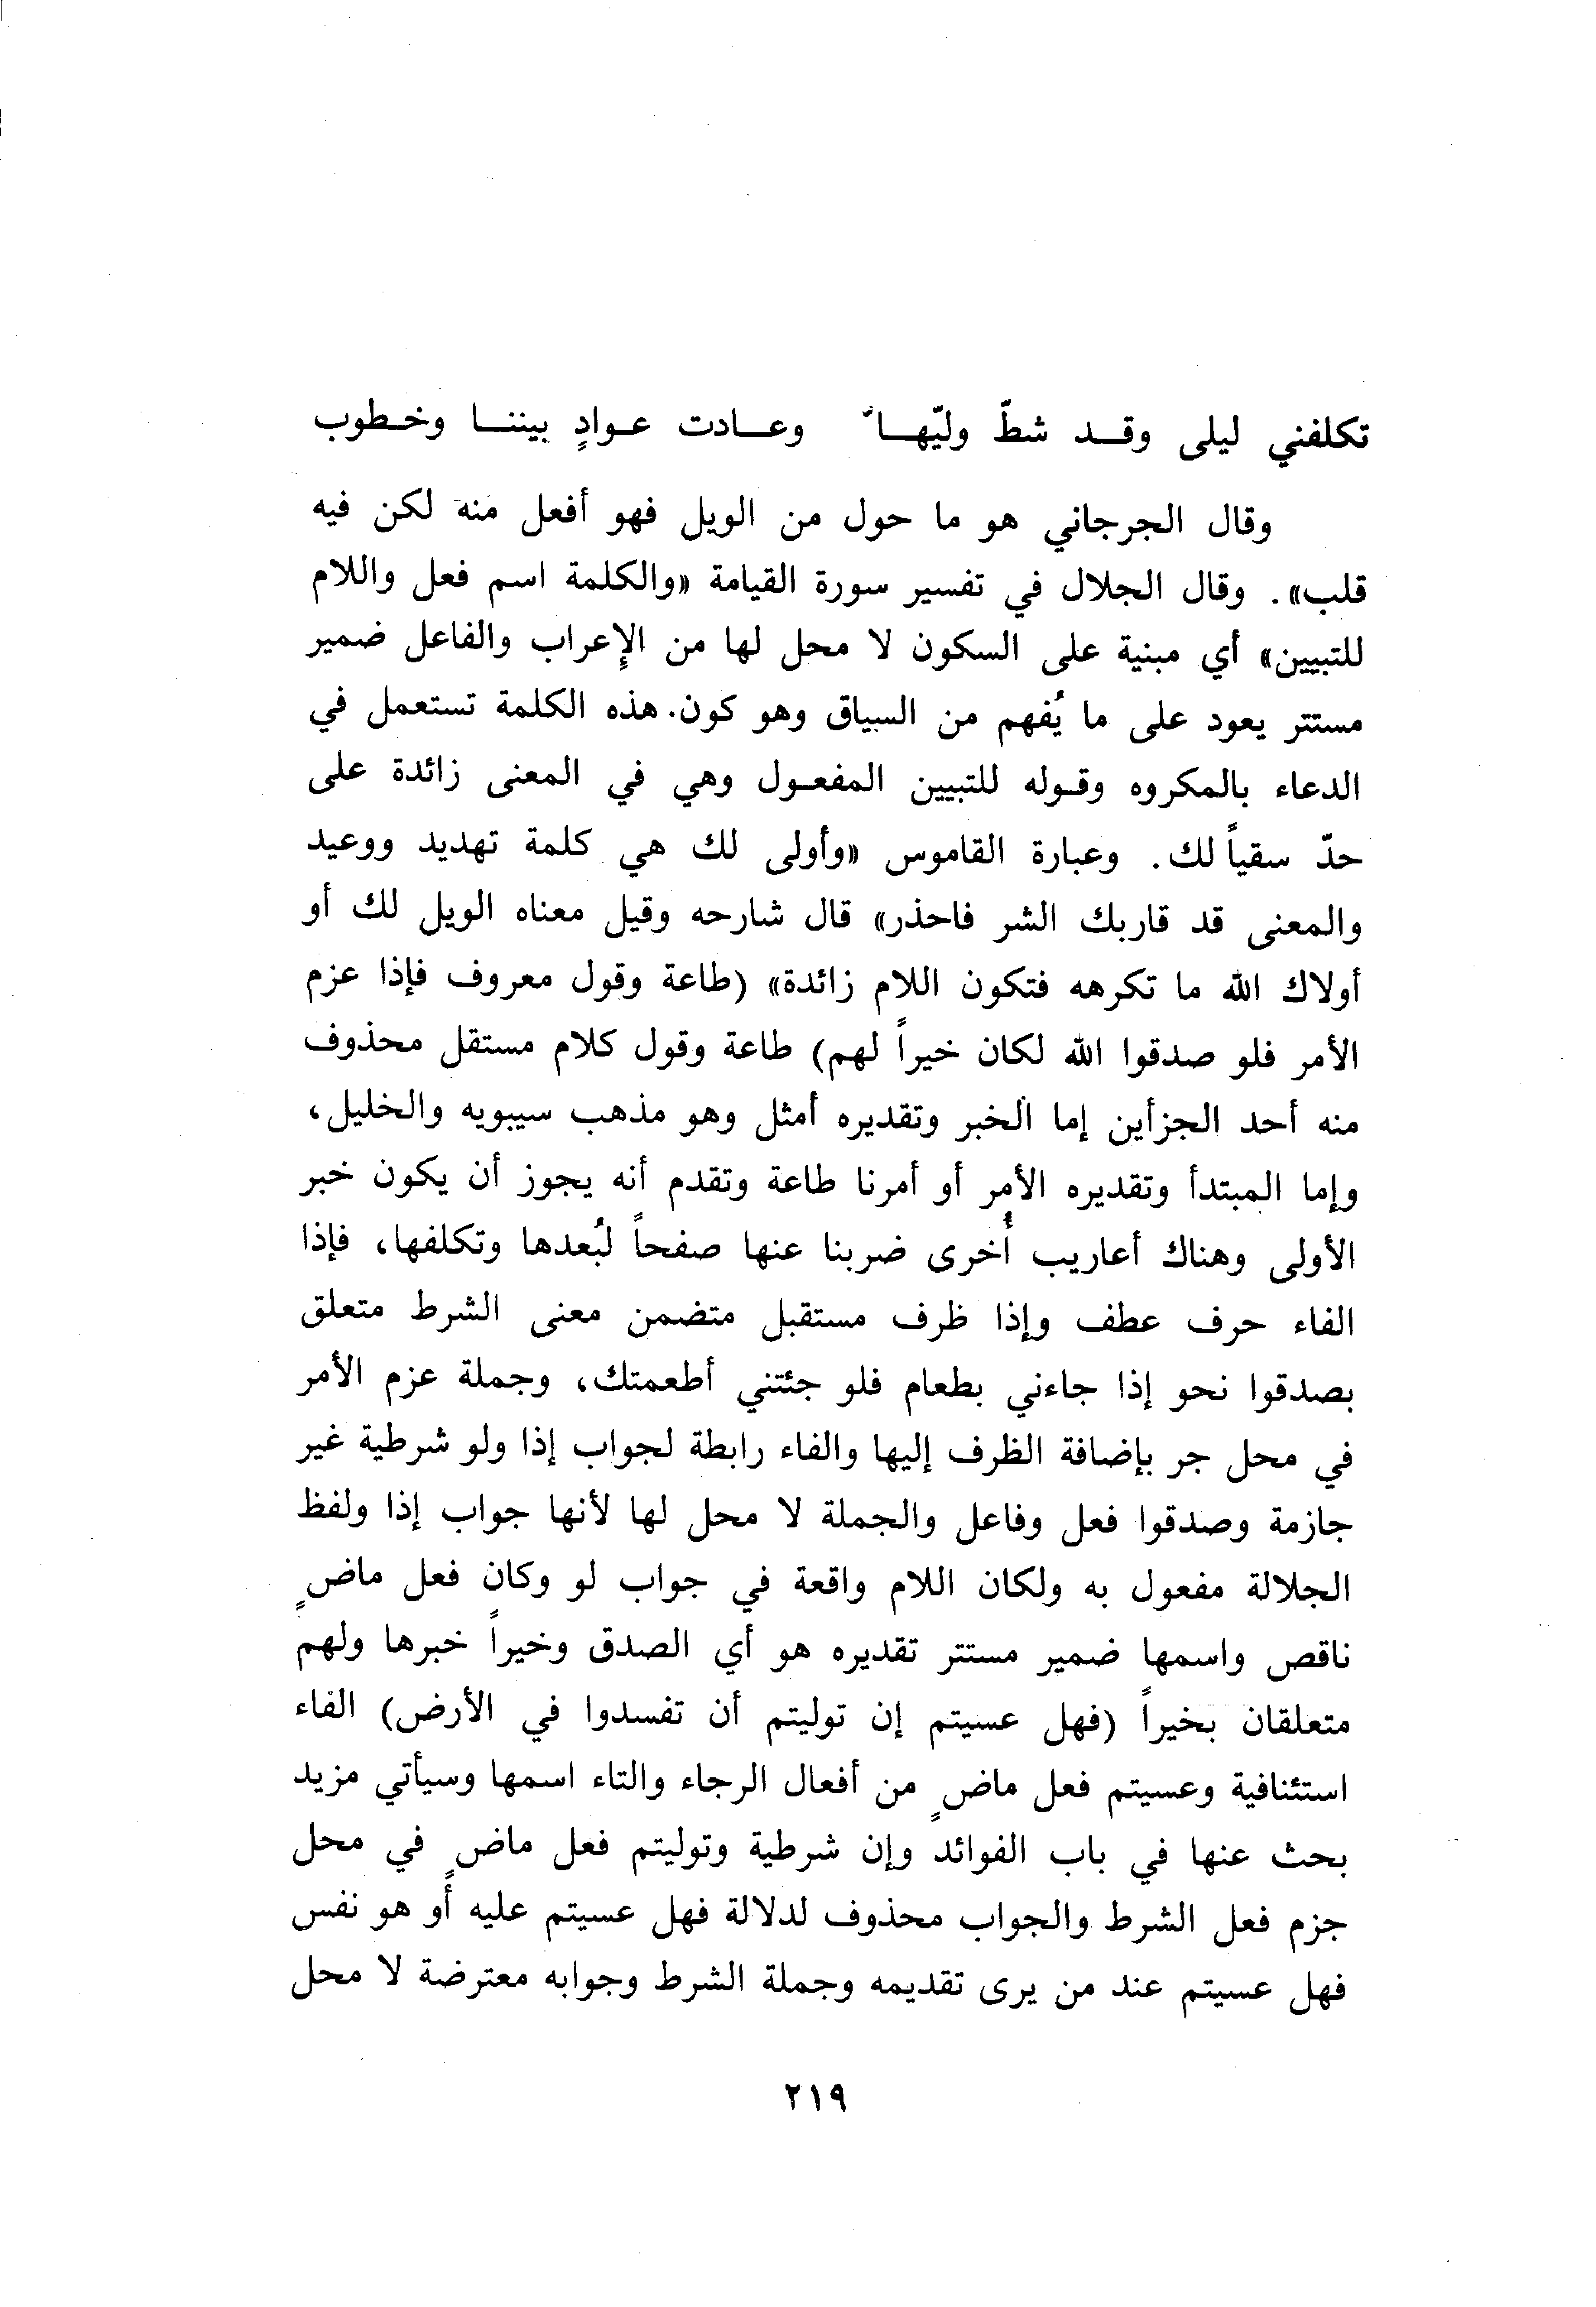 تكلفني ليلى وقد شطّ وليّها وعادت عوادٍ بيننا وخطوب
وقال الجرجاني هو ما حول من الويل فهو أفعل منه لكن فيه
قلب». وقال الجلال في تفسير سورة القيامة «والكلمة اسم فعل واللام
للتبيين» أي مبنية على السكون لا محل لها من الإعراب والفاعل ضمير
مستتر يعود على ما يُفهم من السياق وهو كون. هذه الكلمة تستعمل في
الدعاء بالمكروه وقوله للتبيين المفعول وهي في المعنى زائدة على
حدّ سقياً لك. وعبارة القاموس «وأولى لك هي كلمة تهديد ووعيد
والمعنى قد قاربك الشر فاحذر» قال شارحه وقيل معناه الويل لك أو
أولاك الله ما تكرهه فتكون اللام زائدة» (طاعة وقول معروف فإذا عزم
الأمر فلو صدقوا الله لكان خيراً لهم) طاعة وقول كلام مستقل محذوف
منه أحد الجزأين إما الخبر وتقديره أمثل وهو مذهب سيبويه والخليل،
وإما المبتدأ وتقديره الأمر أو أمرنا طاعة وتقدم أنه يجوز أن يكون خبر
الأولى وهناك أعاريب أُخرى ضربنا عنها صفحاً لبُعدها وتكلفها، فإذا
الفاء حرف عطف وإذا ظرف مستقبل متضمن معنى الشرط متعلق
بصدقوا نحو إذا جاءني بطعام فلو جئتني أطعمتك، وجملة عزم الأمر
في محل جر بإضافة الظرف إليها والفاء رابطة لجواب إذا ولو شرطية غير
جازمة وصدقوا فعل وفاعل والجملة لا محل لها لأنها جواب إذا ولفظ
الجلالة مفعول به ولكان اللام واقعة في جواب لو وكان فعل ماضٍ
ناقص واسمها ضمير مستتر تقديره هو أي الصدق وخيراً خبرها ولهم
متعلقان بخيراً (فهل عسيتم إن توليتم أن تفسدوا في الأرض) الفاء
استئنافية وعسيتم فعل ماضٍ من أفعال الرجاء والتاء اسمها وسيأتي مزيد
بحث عنها في باب الفوائد وإن شرطية وتوليتم فعل ماضٍ في محل
جزم فعل الشرط والجواب محذوف لدلالة فهل عسيتم عليه أو هو نفس
فهل عسيتم عند من يرى تقديمه وجملة الشرط وجوابه معترضة لا محل
٢١٩